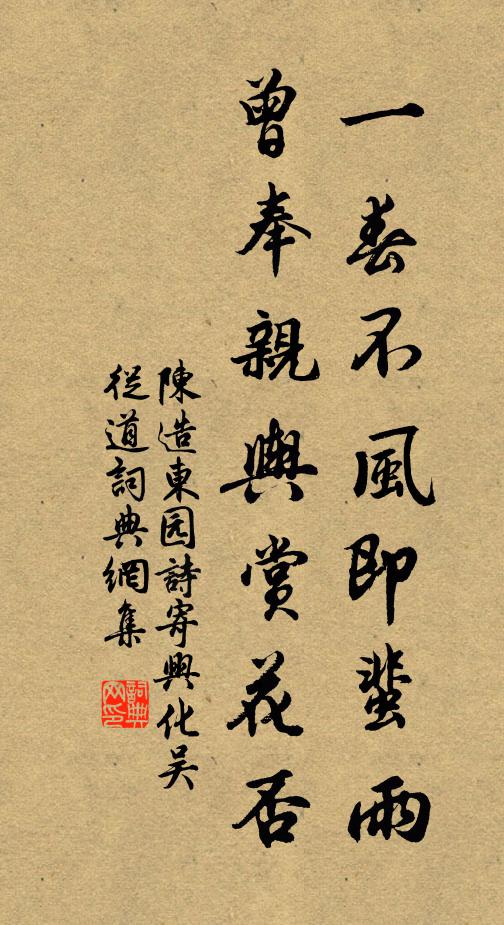 一春不風即蜚雨
曾奉親輿賞花否
陳造東园詩寄興化吳
從道詞典網集
詞典网印